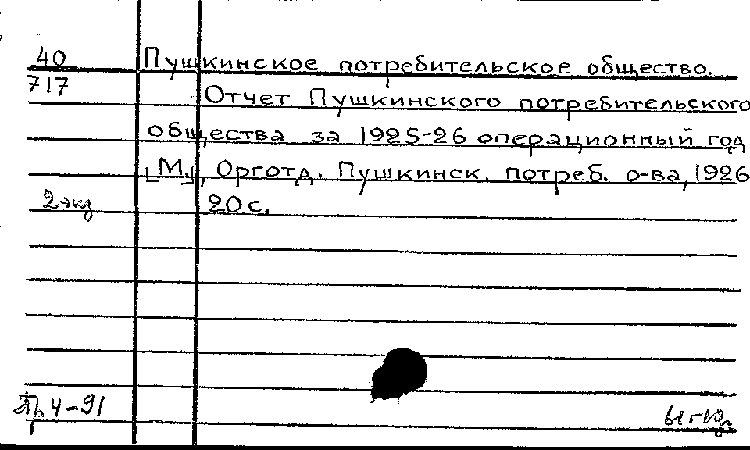 40
717
Пушкинское потребительское общество.
Отчет Пушкинского потребительского
общества за 1925-26 операционный год
[М.], Орготд. Пушкинск. потреб. о-ва, 1926
2 экз
20 с.
4-91